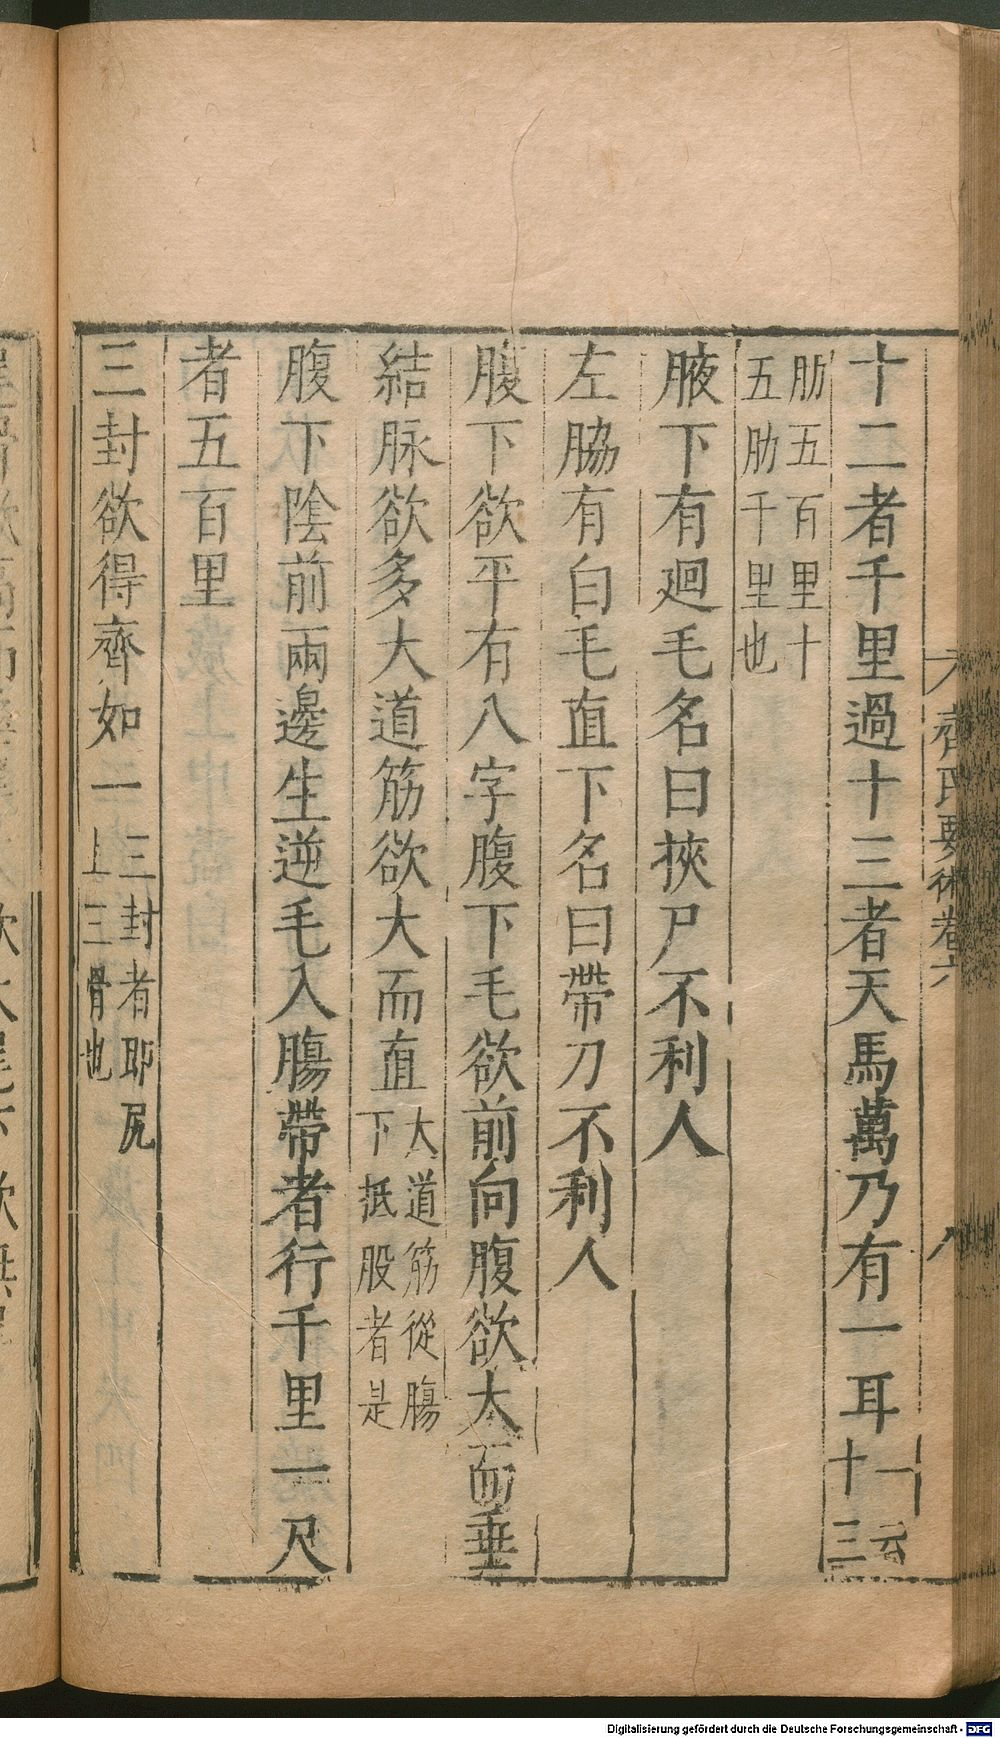 十二者千里過十三者天馬萬乃有一耳一云十三
肋五百里十五肋千里也
腋下有迴毛名曰挾尸不利人
左脇有白毛直下名曰帶刀不利人
腹下欲平有八字腹下毛欲前向腹欲大而垂
結脉欲多大道筋欲大而直大道筋從腸下抵股者是
腹下陰前兩邊生逆毛入腸帶者行千里一尺
者五百里
三封欲得齊如一三封者即尻上三骨也
齊民要術卷六
八
Digitalisierung gefördert durch die Deutsche Forschungsgemeinschaft - DFG